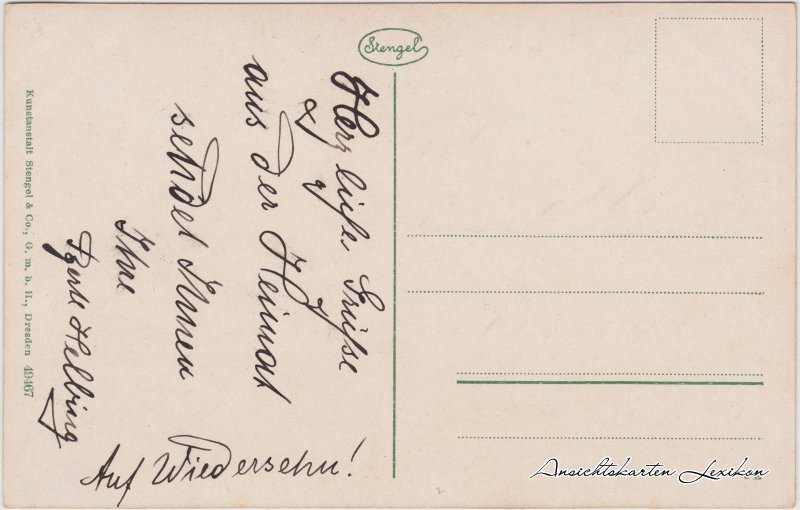 Stengel
Herzliche Grüsse
aus der Heimat
sendet Ihnen
Ihre
Helbing
Auf Wiedersehn!
Kunstanstalt Stengel & Co., G. m. b. H., Dresden 49467
Ansichtskarten Lexikon